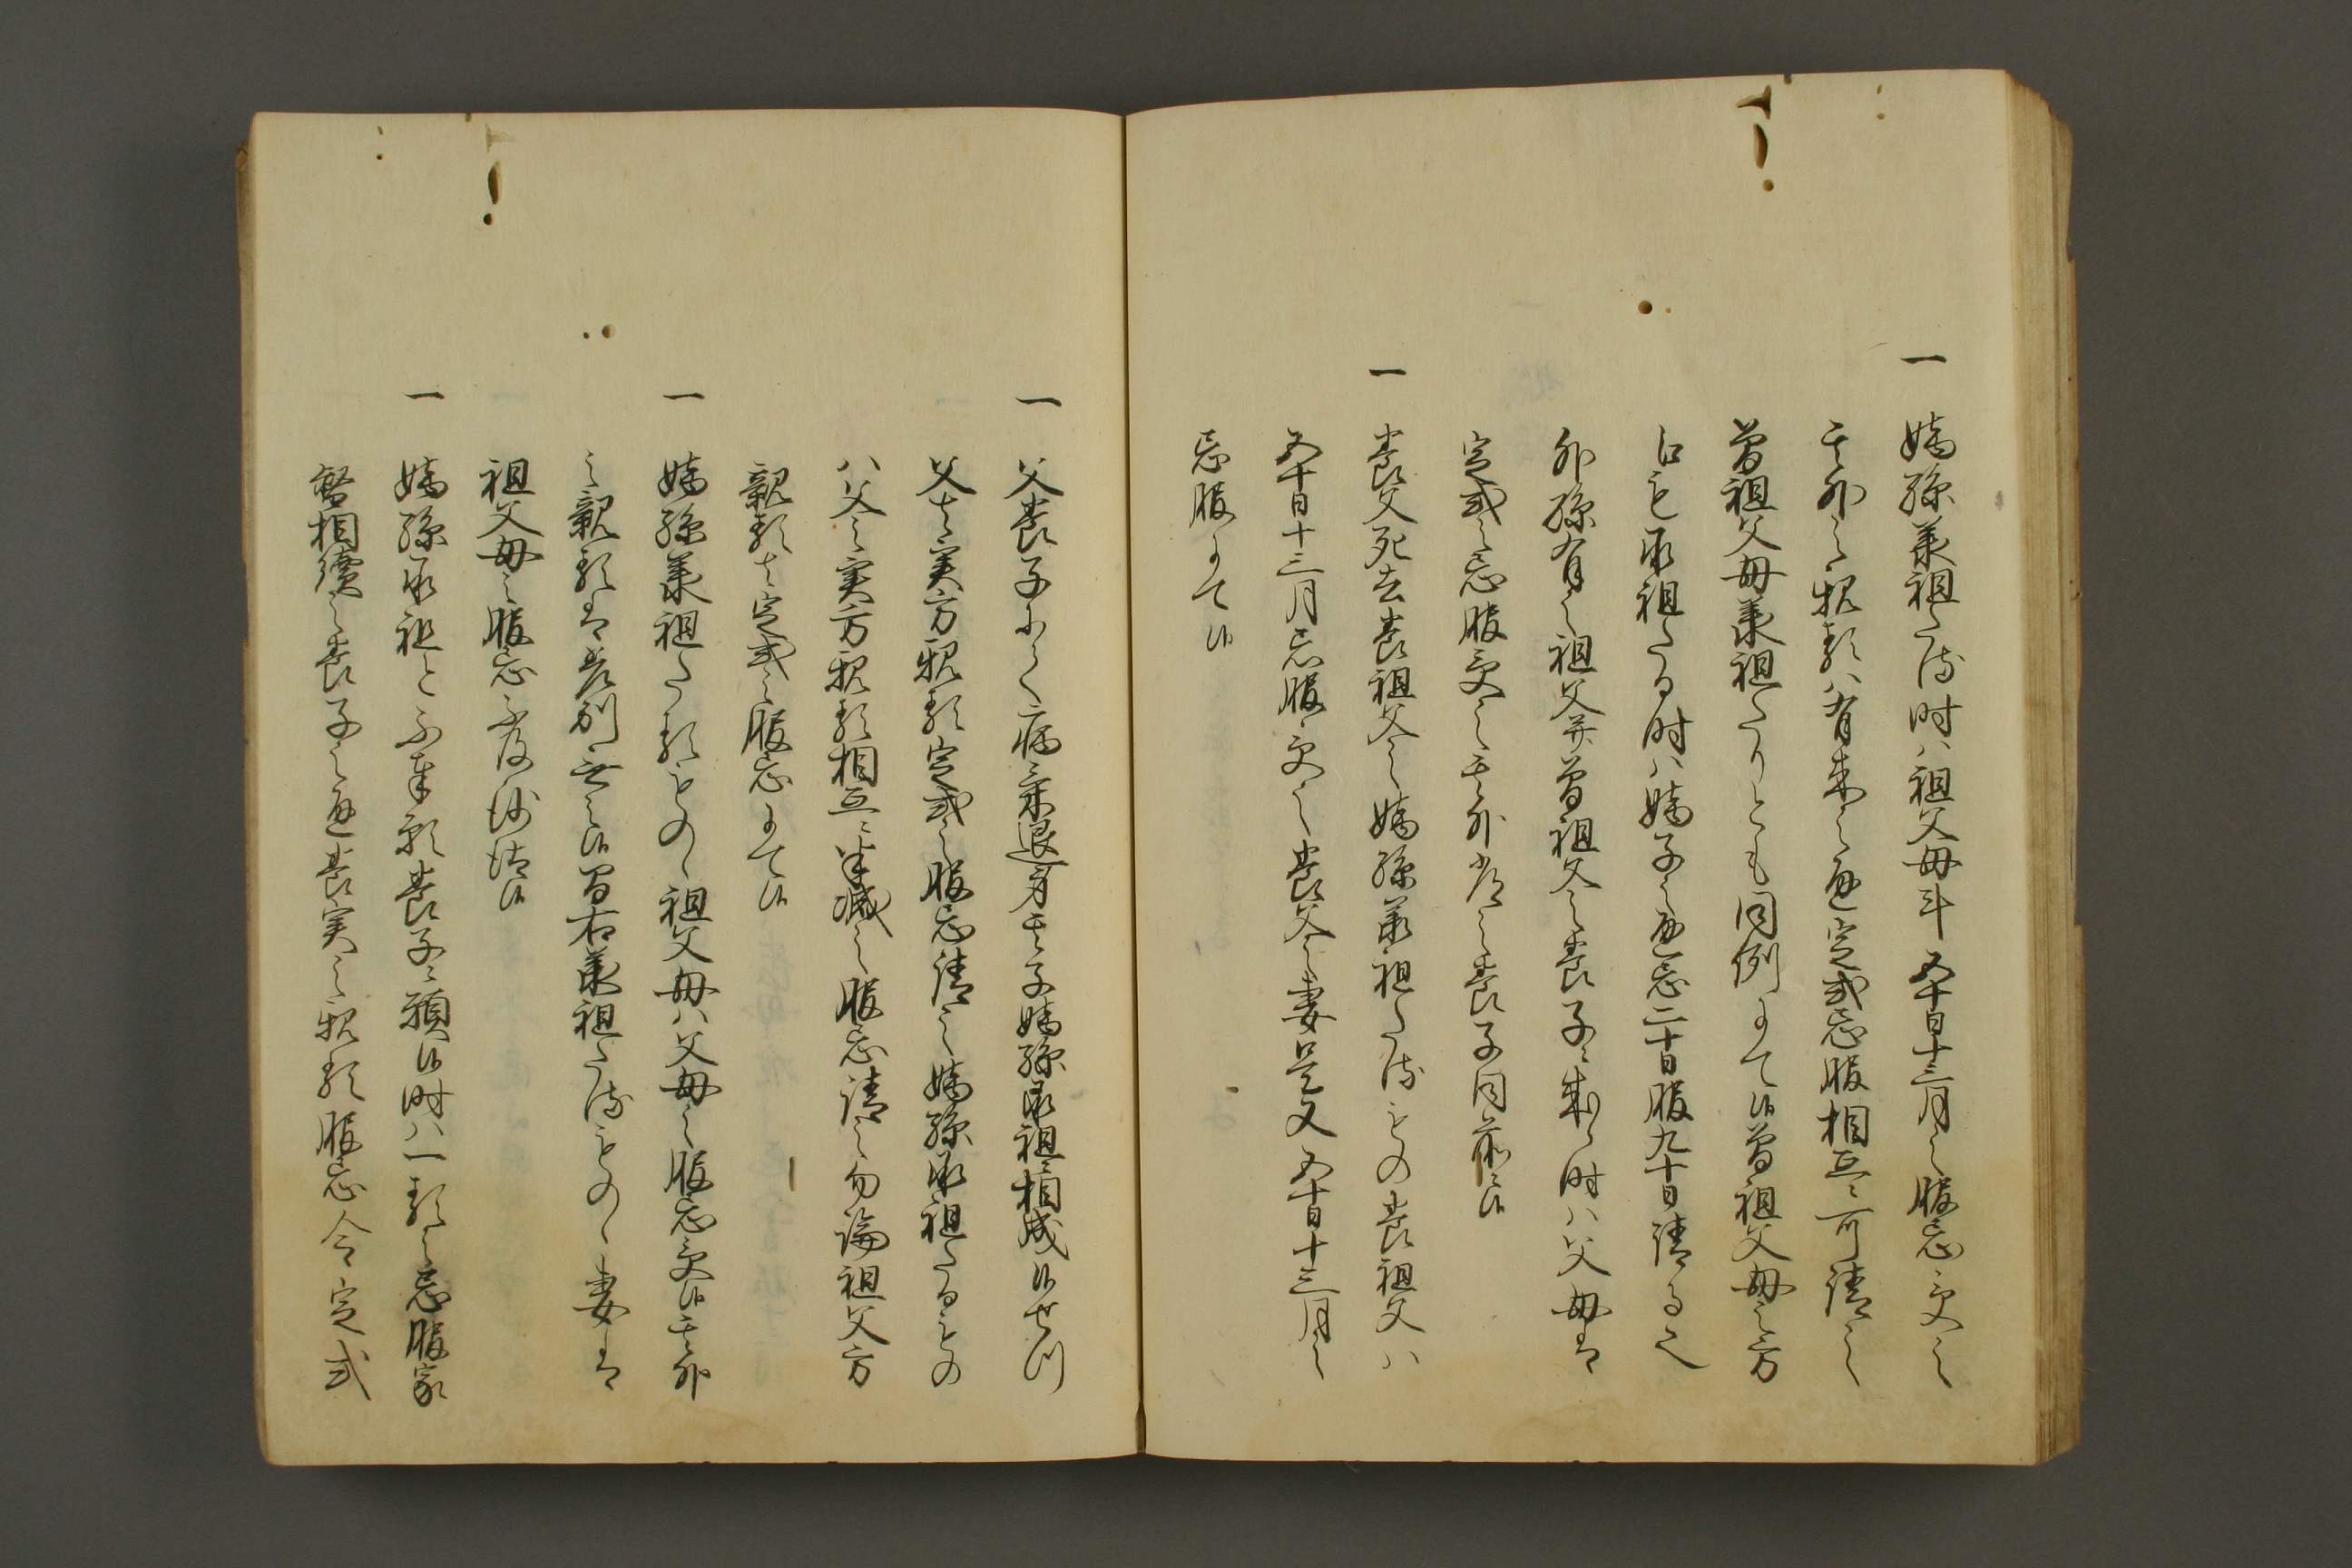 一 嫡孫承祖たる時ハ祖父母斗五十日十三月之服忌受之
其外之親類ハ有来之通定式忌服相互ニ可請之
曽祖父母承祖たりとも同例にて候曽祖父母之方
にも承祖たる時ハ嫡子之通忌二十日服九十日請る也
外孫有之祖父并曽祖父之養子ニ成ル時ハ父母は
定式之忌服受之其外之養子同前ニ候
一 養父死去養祖父之嫡孫承祖たるもの養祖父ハ
五十日十三月忌服受之養父之妻是又五十日十三月之
忌服にて候
一 父養子にて病気退身其子嫡孫承祖ニ相成候
父之実方親類定式之服忌請之嫡孫承祖たるもの
ハ父之実方親類相互ニ半減之服忌請之勿論祖父方
親類は定式之服忌にて候
一 嫡孫承祖たるもの祖父母ハ父母之服忌受候其外
之親類は差別無之候右承祖たるもの妻は
祖父母之服忌
一 嫡孫承祖と不奉願養子ニ願候時ハ一類之忌服家
督相続之養子之通養実之親類服忌今定式